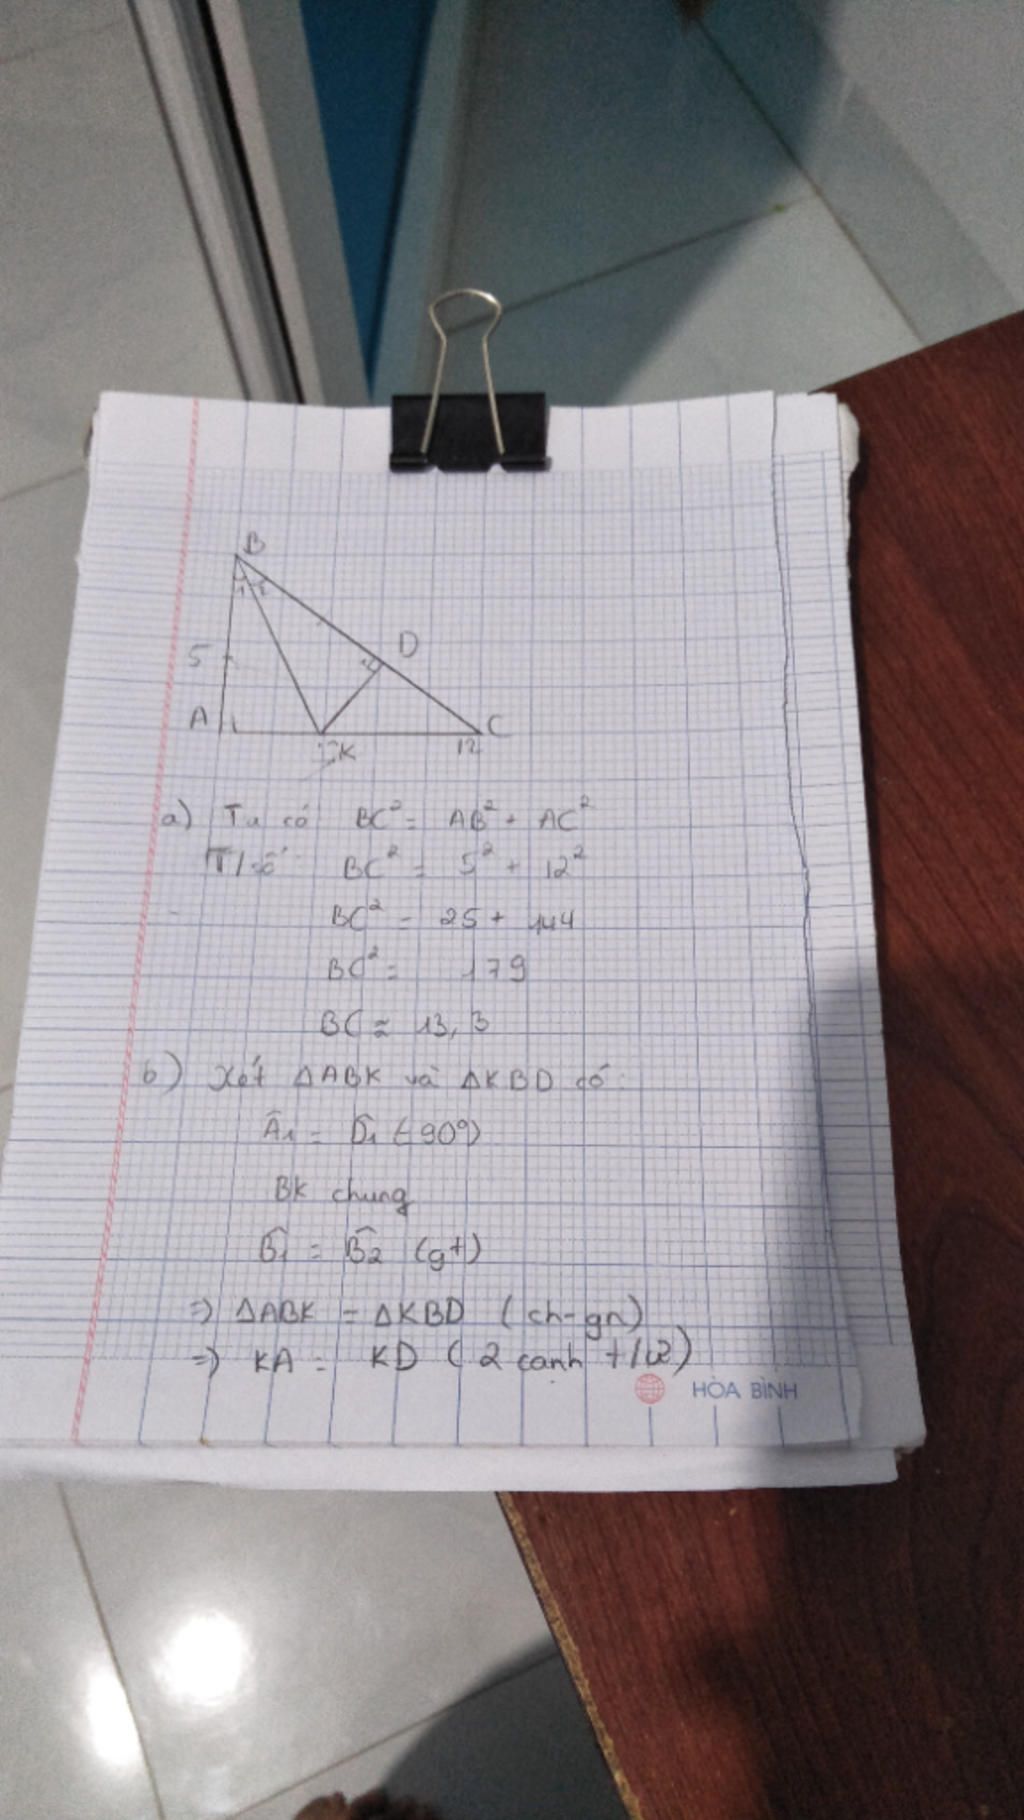 B
1 2
D
5
A
K
12
C
a) Ta có BC² = AB² + AC²
T/số BC² = 5² + 12²
BC² = 25 + 144
BC² = 179
BC ≈ 13,3
b) Xét ΔABK và ΔKBD có:
Â₁ = D̂₁ (=90°)
BK chung
B̂₁ = B̂₂ (gt)
=> ΔABK = ΔKBD (ch-gn)
=> KA = KD (2 cạnh t/ứ)
HÒA BÌNH